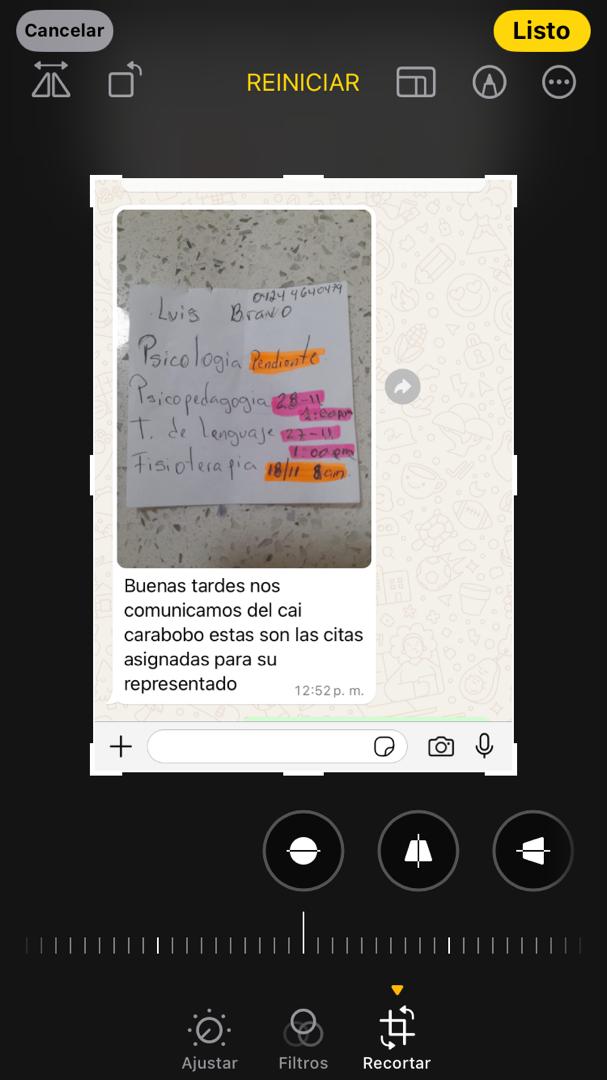 Cancelar
Listo
REINICIAR
04244640479
Luis Bravo
Psicologia Pendiente
Psicopedagogia 28-11
1:00pm
T. de lenguaje 27-11
1:00pm
Fisioterapia 18/11 8am
Buenas tardes nos
comunicamos del cai
carabobo estas son las citas
asignadas para su
representado
12:52 p. m.
Ajustar
Filtros
Recortar